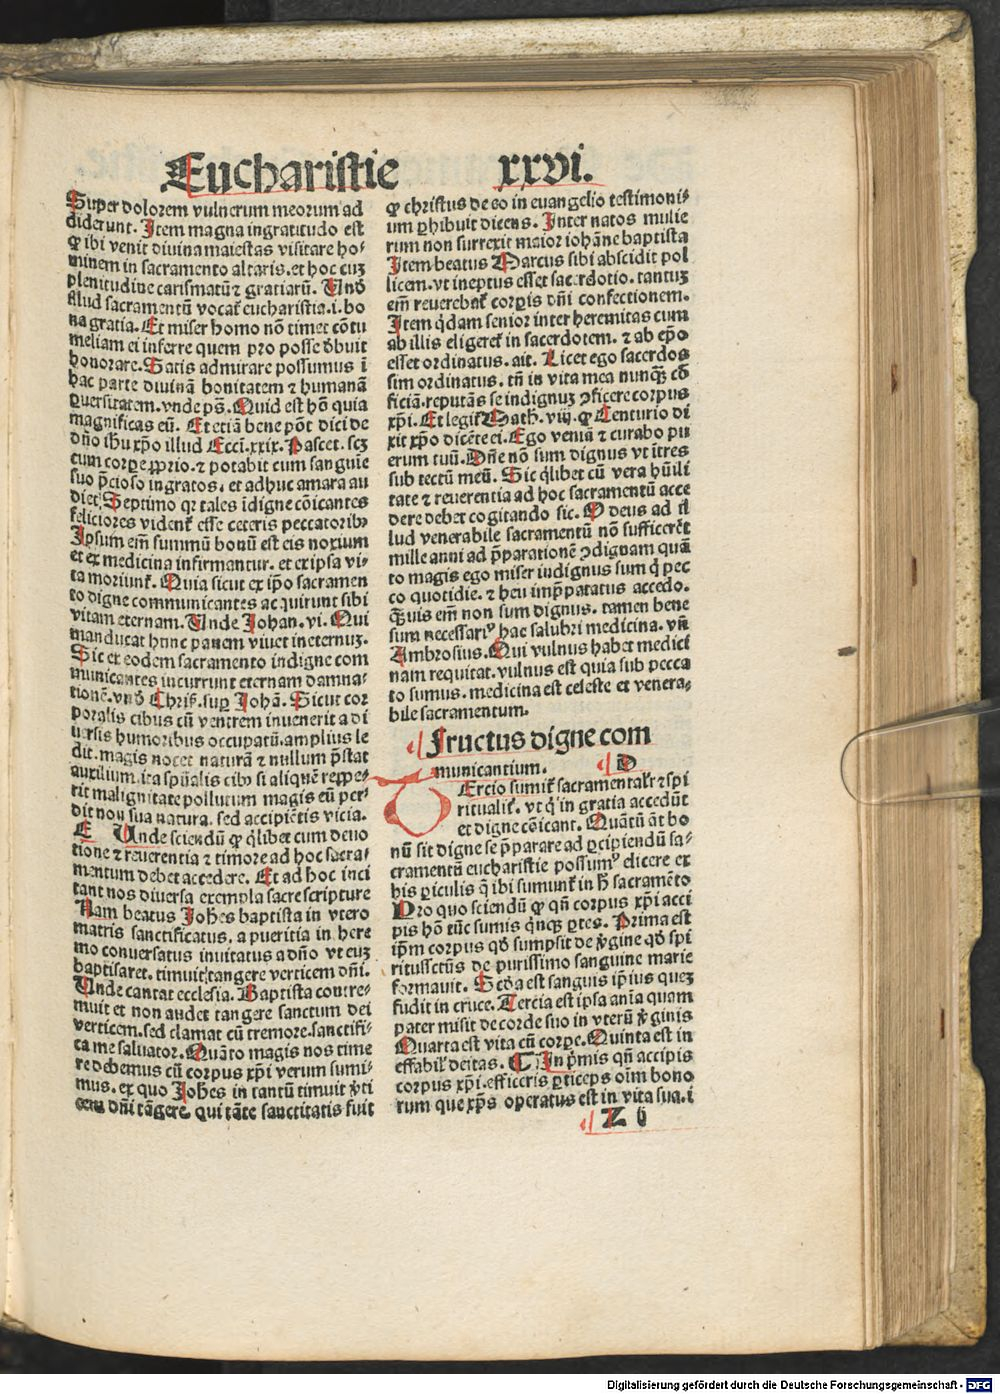 Eucharistie xxvi.
Super dolorem vulnerum meorum ad
diderunt. Item magna ingratitudo est
ꝙ ibi venit diuina maiestas visitare ho⸗
minem in sacramento altaris. et hoc cuꝫ
plenitudine carismatū ⁊ gratiarū. Vnð
illud sacramentū vocat᷑ eucharistia .i. bo
na gratia. Et miser homo nō timet cōtu
meliam ei inferre quem pro posse ðbuit
honorare. Satis admirare possumus ī
hac parte diuinā bonitatem ⁊ humanā
ꝑuersitatem. vnde pš. Quid est hō quia
magnificas eū. Et etiā bene pōt dici de
dño ihū xp̄o illud Eccī. xxix. Pascet. scꝫ
cum corꝑe ꝓprio. ⁊ potabit cum sanguīe
suo p̄cioso ingratos. et adhuc amara au
diet. Septimo qꝛ tales īdigne cōicantes
feliciores vident᷑ esse ceteris peccatoribꝰ
Ipsum em̄ summū bonū est eis noxium
et ex medicina infirmantur. et ex ipsa vi⸗
ta moriunt᷑. Quia sicut ex ip̄o sacramen
to digne communicantes acquirunt sibi
vitam eternam. Vnde Johan. vi. Qui
manducat hunc panem viuet ineternuꝫ.
Sic ex eodem sacramento indigne com
municantes incurrunt eternam damna⸗
tionē. vnð Chriſ. suꝑ Johā. Sicut cor
poralis cibus cū ventrem inuenerit a di
uersis humoribus occupatū. amplius le
dit. magis nocet naturā ⁊ nullum p̄stat
auxilium. ita sp̄ualis cibꝰ si aliquē reppe⸗
rit malignitate pollutum magis eū per⸗
dit non sua natura. sed accipiētis vicia.
E Vnde sciendū ꝙ qͥlibet cum deuo
tione ⁊ reuerentia ⁊ timore ad hoc sacra⸗
mentum debet accedere. Et ad hoc inci
tant nos diuersa exempla sacre scripture
Nam beatus Joħes baptista in vtero
matris sanctificatus. a pueritia in here
mo conuersatus inuitatus a dño vt euꝫ
baptisaret. timuit tangere verticem dñi.
Vnde cantat ecclesia. Baptista contre⸗
muit et non audet tangere sanctum dei
verticem. sed clamat cū tremore. sanctifi⸗
ca me saluator. Quāto magis nos time
re debemus cū corpus xp̄i verum sumi⸗
mus. ex quo Joħes in tantū timuit v̓ti
cem dñi tāgere. qui tāte sanctitatis fuit
ꝙ christus de eo in euangelio testimoni⸗
um ꝑhibuit dicens. Inter natos mulie
rum non surrexit maior iohāne baptista
Item beatus Marcus sibi abscidit pol
licem. vt ineptus esset sacerdotio. tantuꝫ
em̄ reuerebat᷑ corꝑis dñi confectionem.
Item qͥdam senior inter heremitas cum
ab illis eligeret᷑ in sacerdotem. ⁊ ab ep̄o
esset ordinatus. ait. Licet ego sacerdos
sim ordinatus. tñ in vita mea nunqꝫ cō
ficiā. reputās se indignuꝫ ꝯficere corpus
xp̄i. Et legit᷑ Math. viij. ꝙ Centurio di
xit xp̄o dicēte ei. Ego veniā ⁊ curabo pu
erum tuū. Dñe nō sum dignus vt ītres
sub tectū meū. Sic qͥlibet cū vera hūili
tate ⁊ reuerentia ad hoc sacramentū acce
dere debet cogitando sic. O deus ad il
lud venerabile sacramentū nō sufficerēt
mille anni ad p̄parationē ꝯdignam quā
to magis ego miser indignus sum qͥ pec
co quotidie. ⁊ heu imp̄paratus accedo.
Qͣuis em̄ non sum dignus. tamen bene
sum necessariꝰ hac salubri medicina. vñ
Ambrosius. Qui vulnus habet medici
nam requirat. vulnus est quia sub pecca
to sumus. medicina est celeste et venera⸗
bile sacramentum.
Fructus digne com
municantium. D
Tercio sumit᷑ sacramentalr̄ ⁊ spi
ritualit᷑. vt qͥ in gratia accedūt
et digne cōicant. Quātū āt bo
nū sit digne se p̄parare ad ꝑcipiendū sa⸗
cramentū eucharistie possumꝰ dicere ex
his ꝑiculis q̄ ibi sumunt᷑ in ħ sacramēto
Pro quo sciendū ꝙ qñ corpus xp̄i acci
pis hō tūc sumis qͥnqꝫ ꝑtes. Prima est
ip̄m corpus qð sumpsit de v̓gine qð spi
ritussctūs de purissimo sanguine marie
formauit. Scða est sanguis ip̄ius queꝫ
fudit in cruce. Tercia est ipsa aīa quam
pater misit de corde suo in vterū v̓ginis
Quarta est vita cū corꝑe. Quinta est in
effabil̓ deitas. ¶ In p̄mis qñ accipis
corpus xp̄i. efficeris ꝑticeps oīm bono
rum que xp̄s operatus est in vita sua. i
Z ij
Digitalisierung gefördert durch die Deutsche Forschungsgemeinschaft - DFG